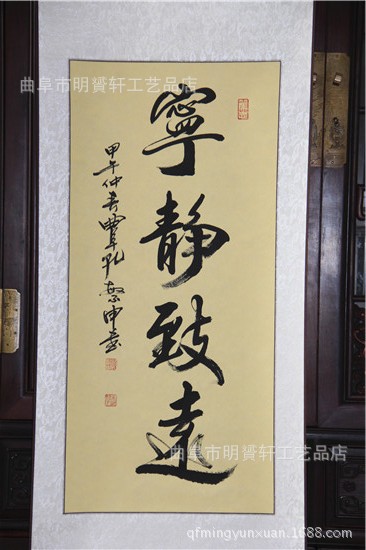 曲阜市明贤轩工艺品店
寧靜致遠
甲午仲春曲阜孔
曲阜市明贤轩工艺品店
qfmingyunxuan.1688.com